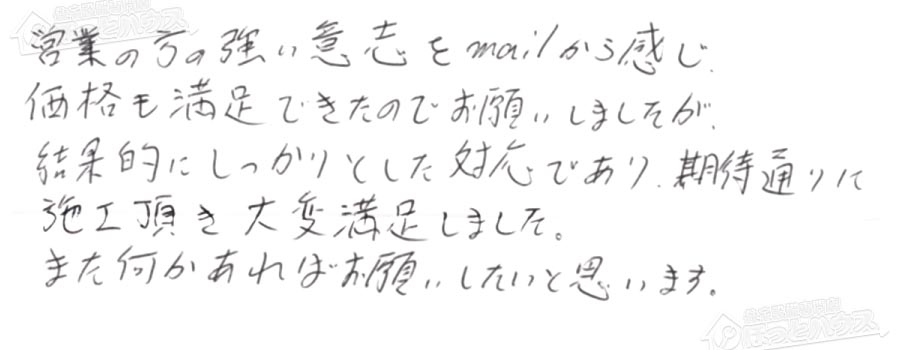 営業の方の強い意志をmailから感じ、
価格も満足できたのでお願いしましたが、
結果的にしっかりとした対応であり、期待通りに
施工頂き大変満足しました。
また何かあればお願いしたいと思います。
ほっとハウス